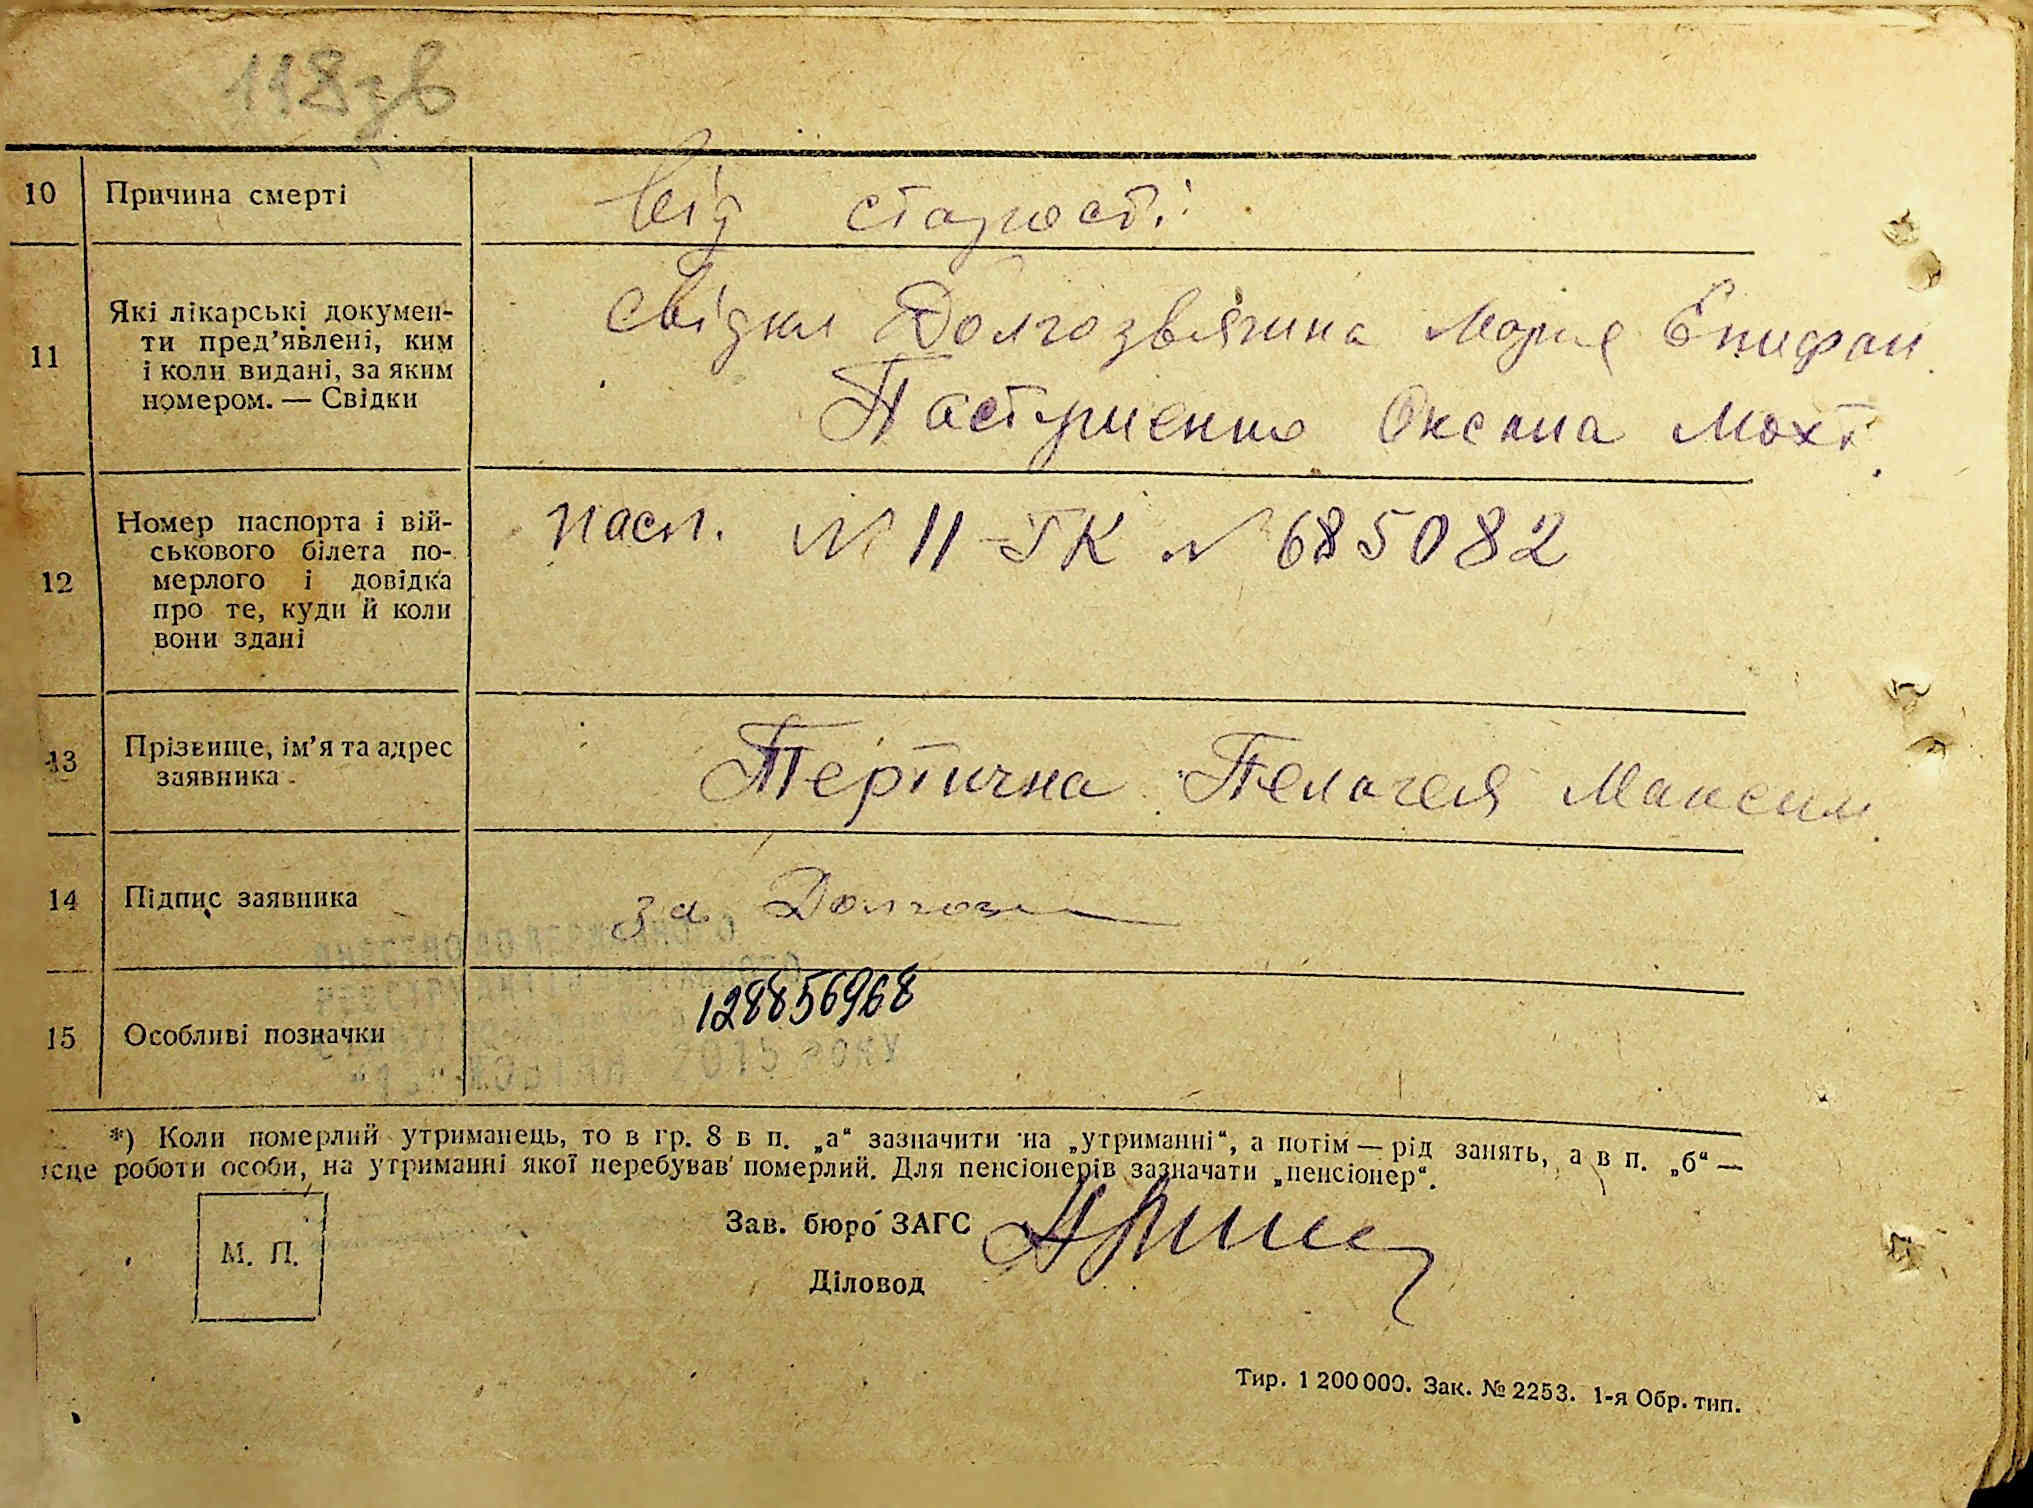 118зв
10 Причина смерті від старості
11 Які лікарські докумен-
ти пред’явлені, ким
і коли видані, за яким
номером. — Свідки
свідки Долгозвягина Мария Епифан.
Пастушенко Оксана Мохт.
12 Номер паспорта і вій-
ськового білета по-
мерлого і довідка
про те, куди й коли
вони здані
пасп. № II-ГК № 685082
13 Прізвище, ім’я та адрес
заявника
Тертична Пелагея Максим.
14 Підпис заявника за Долгозв
15 Особливі позначки 128856968
2015 РОКУ
*) Коли померлий утриманець, то в гр. 8 в п. „а“ зазначити на „утриманні“, а потім — рід занять, а в п. „б“ —
ісце роботи особи, на утриманні якої перебував померлий. Для пенсіонерів зазначати „пенсіонер“.
М. П.
Зав. бюро ЗАГС
Діловод
Тир. 1 200 000. Зак. № 2253. 1-я Обр. тип.